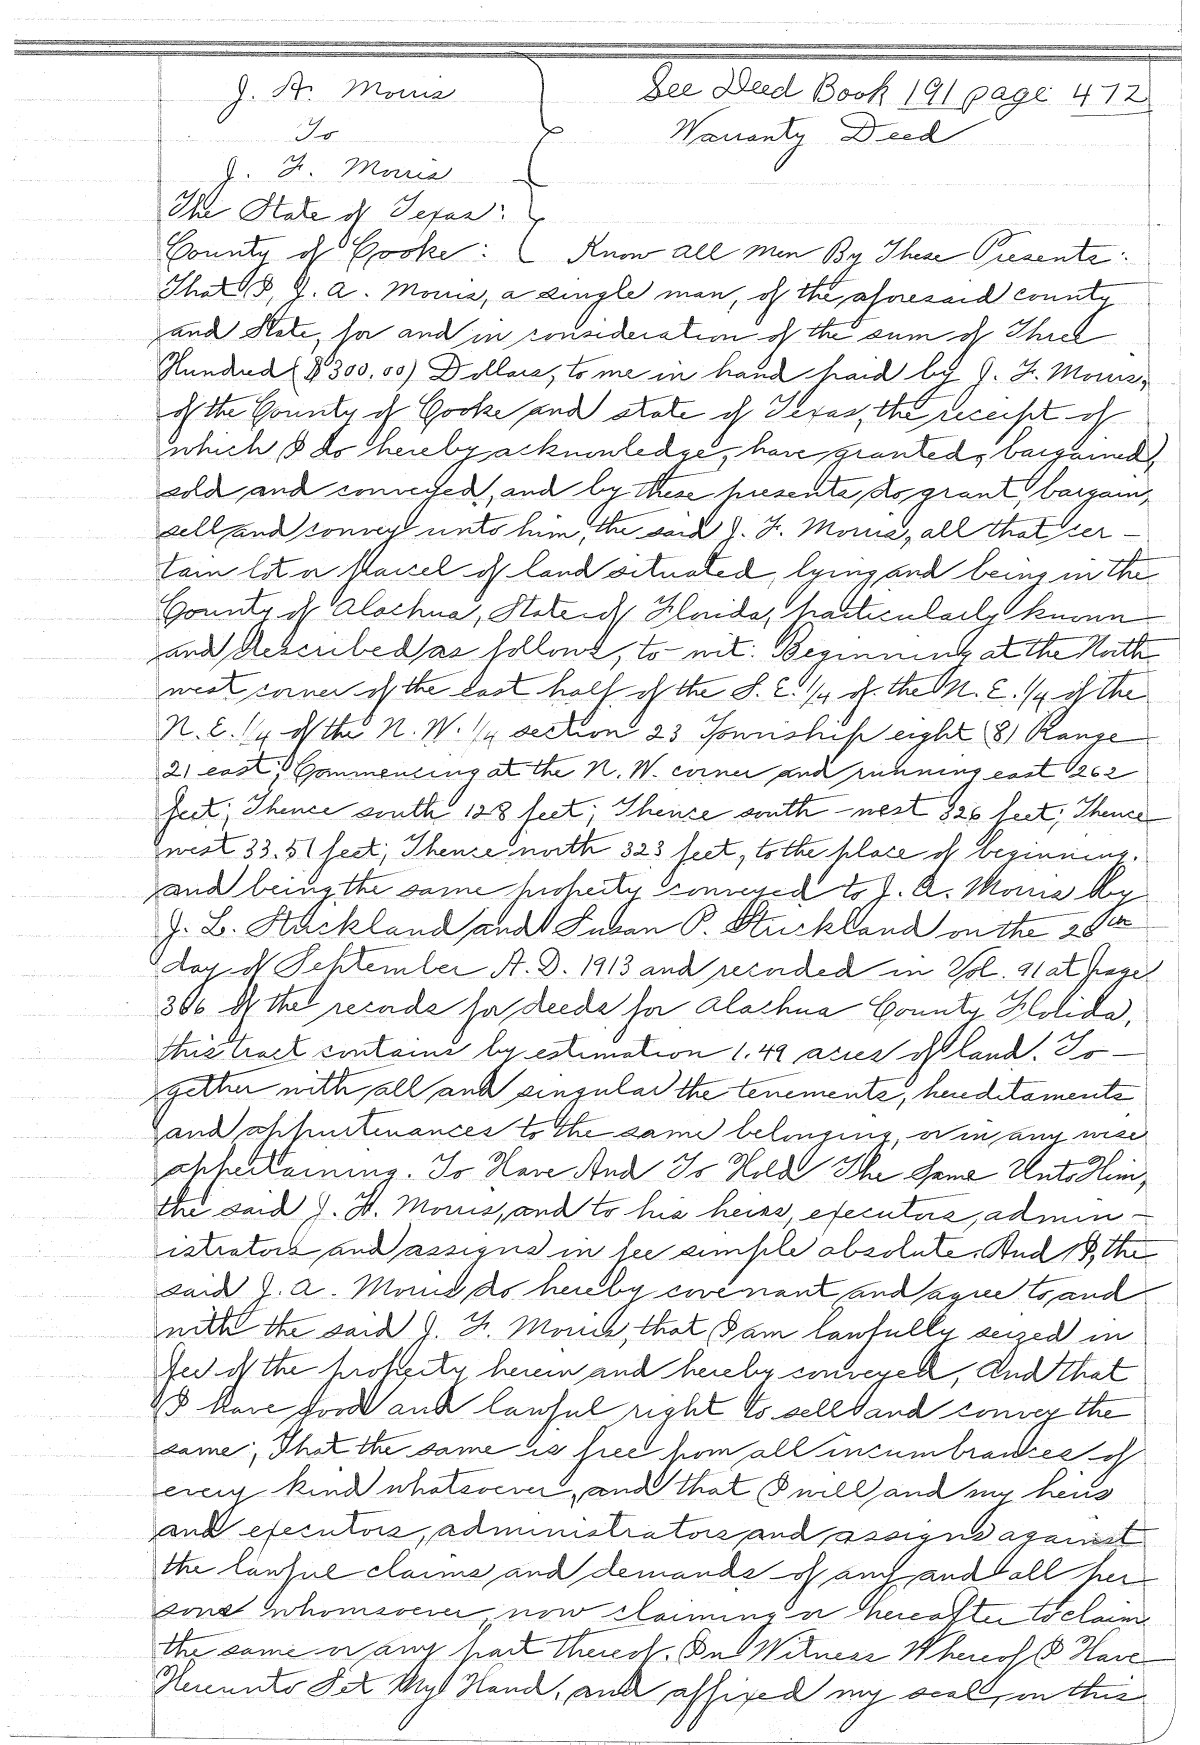 J. A. Morris
See Deed Book 191 page 472
To
Warranty Deed
J. F. Morris
The State of Texas:
County of Cooke: Know all men By These Presents:
That I, J. A. Morris, a single man, of the aforesaid county
and State, for and in consideration of the sum of Three
Hundred ($300.00) Dollars, to me in hand paid by J. F. Morris,
of the County of Cooke and state of Texas, the receipt of
which I do hereby acknowledge, have granted, bargained,
sold and conveyed, and by these presents do grant, bargain,
sell and convey unto him, the said J. F. Morris, all that cer-
tain lot or parcel of land situated, lying and being in the
County of Alachua, State of Florida, particularly known
and described as follows, to-wit: Beginning at the North
west corner of the east half of the S. E. 1/4 of the N. E. 1/4 of the
N. E. 1/4 of the N. W. 1/4 section 23 Township eight (8) Range
21 east; Commencing at the N. W. corner and running east 262
feet; Thence south 128 feet; Thence south-west 326 feet; Thence
west 33.51 feet; Thence north 323 feet, to the place of beginning.
and being the same property conveyed to J. A. Morris by
J. L. Strickland and Susan P. Strickland on the 26th
day of September A. D. 1913 and recorded in Vol. 91 at page
306 of the records for deeds for Alachua County Florida,
this tract contains by estimation 1.49 acres of land. To-
gether with all and singular the tenements, hereditaments
and appurtenances to the same belonging, or in any wise
appertaining. To Have And To Hold The Same Unto Him,
the said J. F. Morris, and to his heirs, executors, admin-
istrators and assigns in fee simple absolute. And I, the
said J. A. Morris, do hereby covenant and agree to and
with the said J. F. Morris, that I am lawfully seized in
fee of the property herein and hereby conveyed, And that
I have good and lawful right to sell and convey the
same; That the same is free from all incumbrances of
every kind whatsoever, and that I will and my heirs
and executors, administrators and assigns against
the lawful claims and demands of any and all per
sons whomsoever, now claiming or hereafter to claim
the same or any part thereof. In Witness Whereof I Have
Hereunto Set My Hand, and affixed my seal, on this